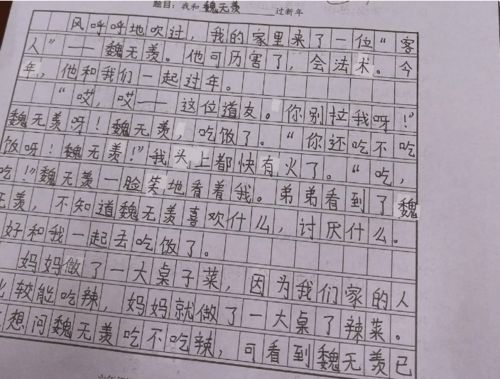 题目：我和魏无羡过新年
风呼呼地吹过，我的家里来了一位“客
人”——魏无羡。他可历害了，会法术。今
年，他和我们一起过年。
“哎，哎——这位道友。你别拉我呀！”
魏无羡呀！魏无羡，吃饭了。“你还吃不吃
饭呀！魏无羡！”我头上都快有火了。“吃，
吃！”魏无羡一脸笑地看着我。弟弟看到了魏
无羡，不知道魏无羡喜欢什么，讨厌什么。
好和我一起去吃做了。
妈妈做了一大桌子菜，因为我们家的人
比较能吃辣，妈妈就做了一大桌了辣菜。
想问魏无羡吃不吃辣，可看到魏无羡已